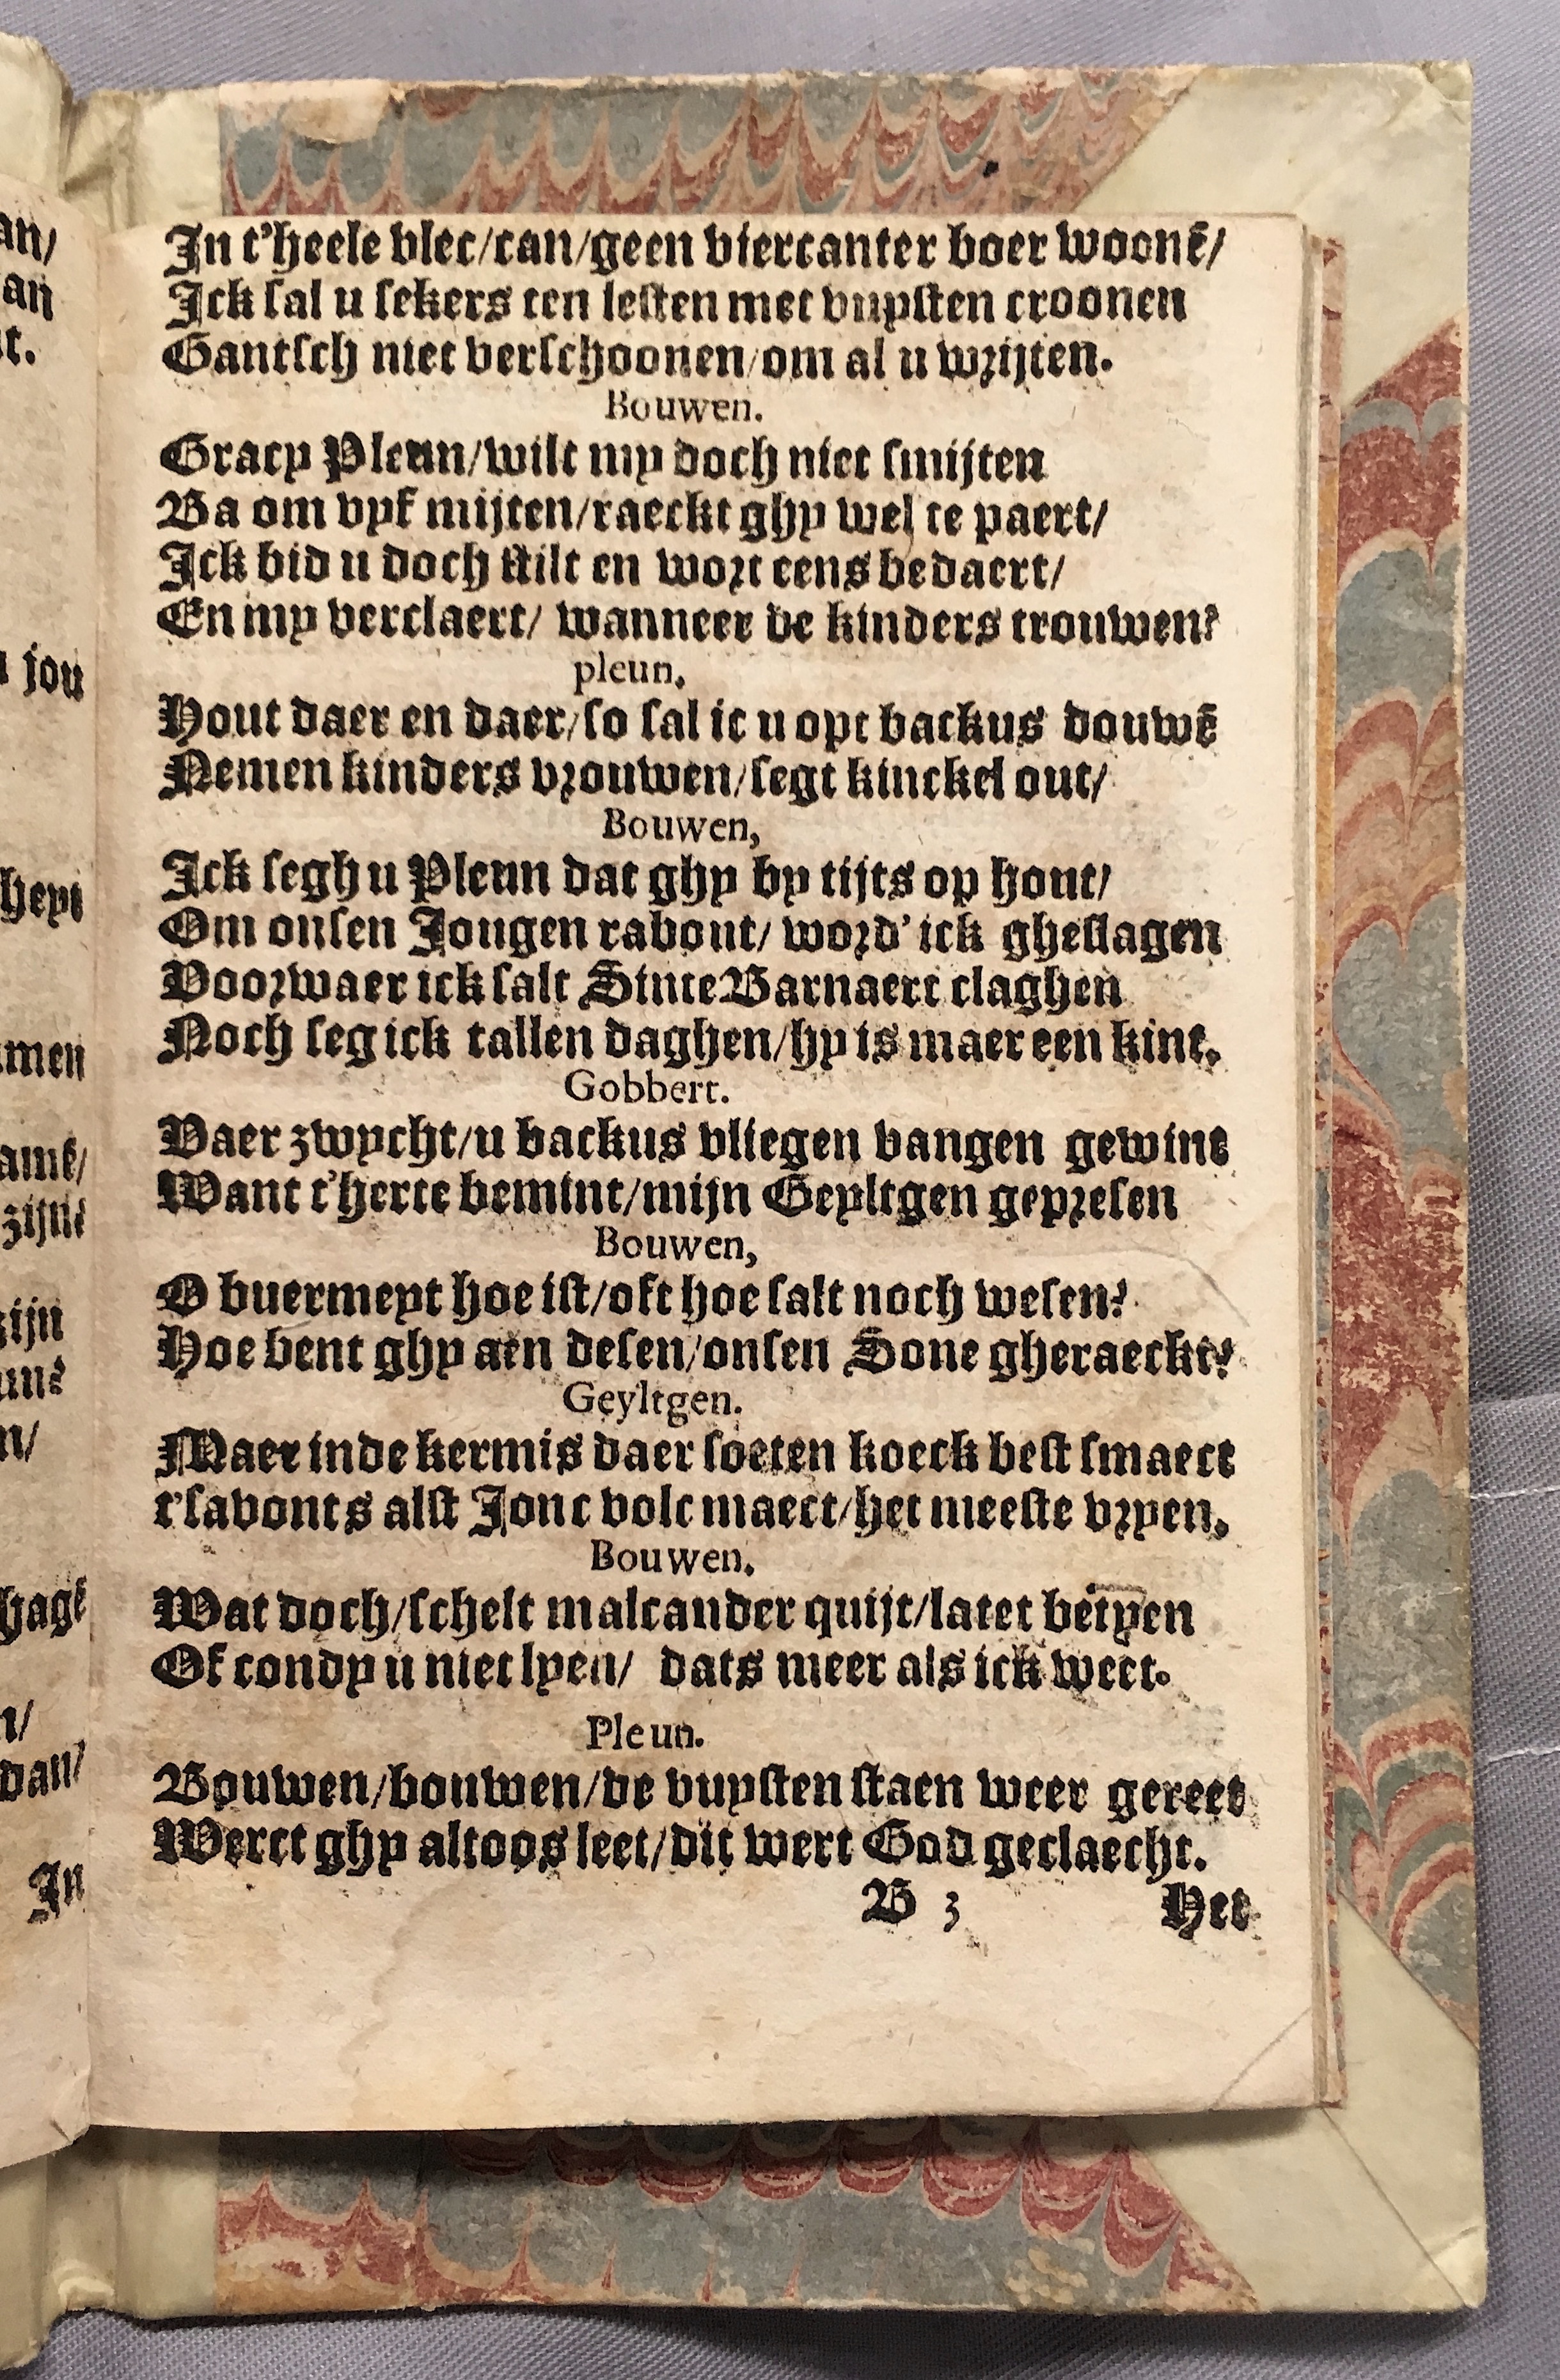 In t'heele vlec/can/geen viercanter boer woonē/
Ick sal u sekers ten lesten met vuysten croonen
Gantsch niet verschoonen/om al u wrijten.
Bouwen.
Gracy Pleun/wilt my doch niet smijten
Ba om vyf mijten/raeckt ghy wel te paert/
Ick bid u doch stilt en wort eens bedaert/
En my verclaert/ wanneer de kinders trouwen?
pleun.
Hout daer en daer/so sal ic u opt backus douwē
Nemen kinders vrouwen/segt kinckel out/
Bouwen,
Ick segh u Pleun dat ghy by tijts op hout/
Om onsen Jongen rabout/ word' ick gheslagen
Voorwaer ick salt Sinte Barnaert claghen
Noch seg ick tallen daghen/hy is maer een kint.
Gobbert.
Vaer zwycht/u backus vliegen vangen gewint
Want t'herte bemint/mijn Geyltgen gepresen
Bouwen,
O buermeyt hoe ist/oft hoe salt noch wesen?
Hoe bent ghy aen desen/onsen Sone gheraeckt?
Geyltgen.
Maer inde kermis daer soeten koeck best smaect
t'savonts alst Jonc volc maect/het meeste vryen.
Bouwen.
Wat doch/schelt malcander quijt/latet betyen
Of condy u niet lyen/ dats meer als ick weet.
Pleun.
Bouwen/bouwen/de vuysten staen weer gereet
Werct ghy altoos leet/dit wert God geclaecht.
B 3 Het
an/
an
t.
jou
heyt
men
zijn
n/
n/
dan/
In